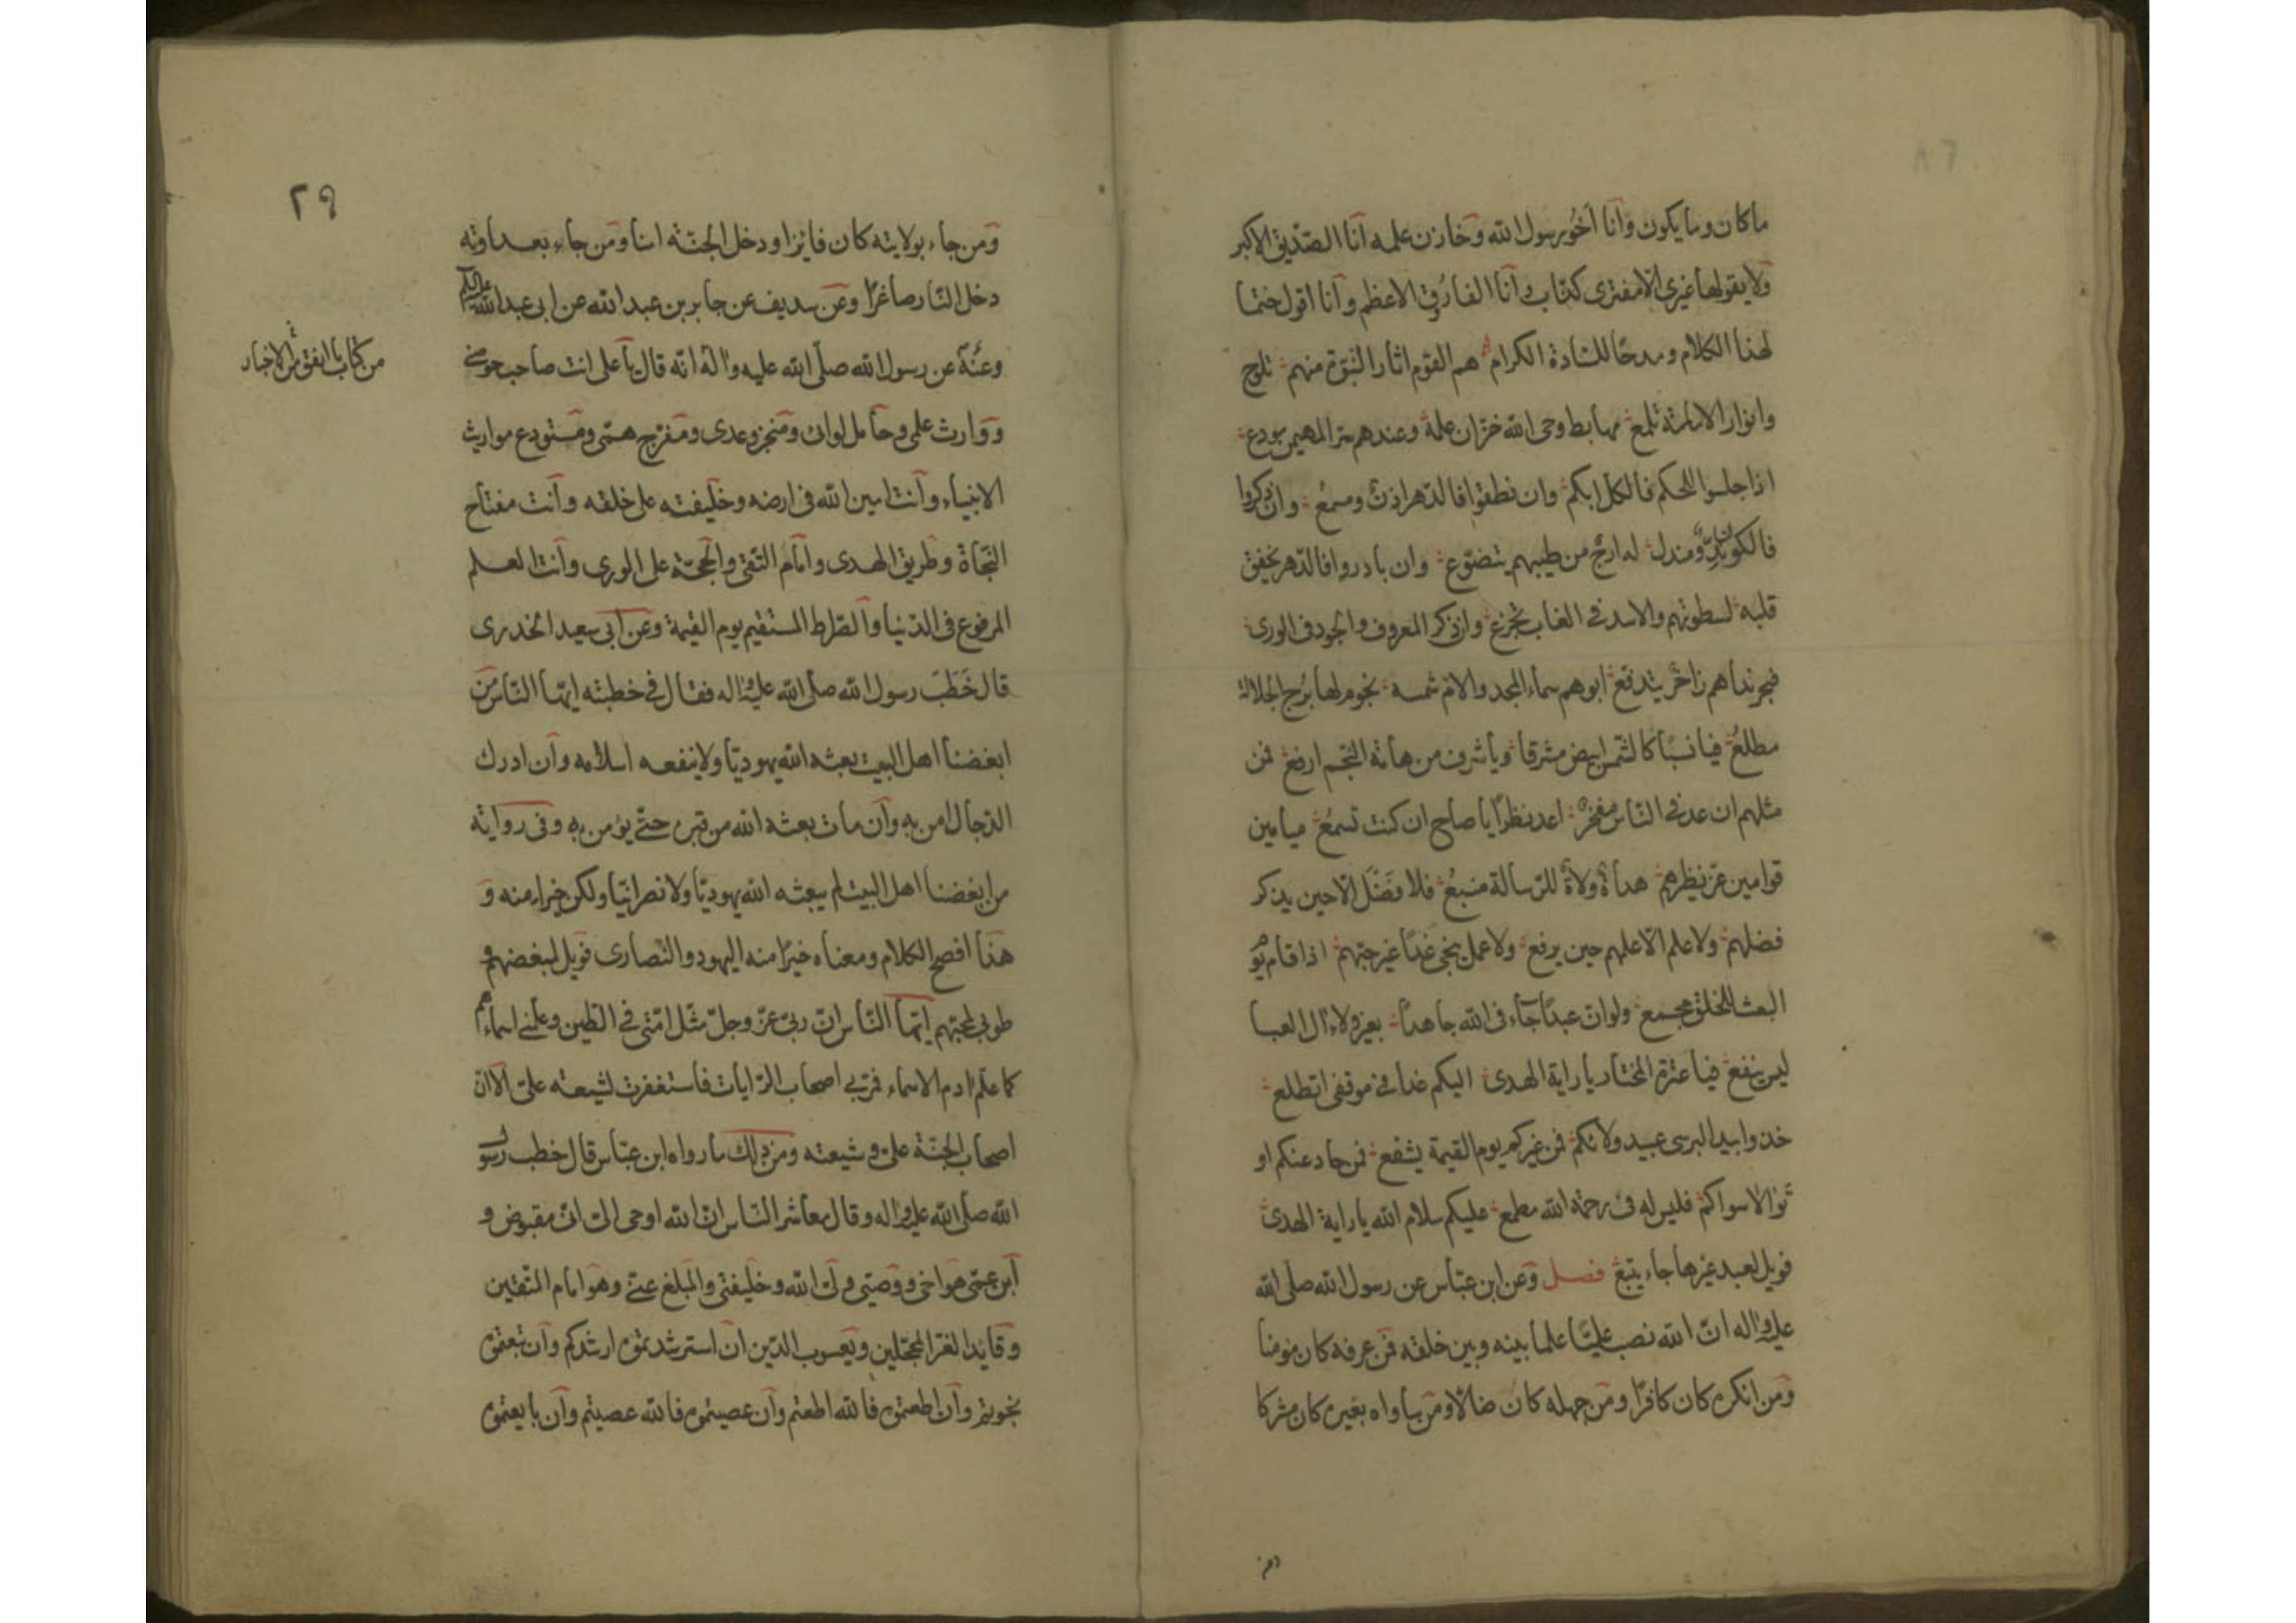 ماكان وما يكون وانا اخو رسول الله وخازن علمه انا الصديق الاكبر
ولا يقولها غيرى الا مفترى كذاب وانا الفاروق الاعظم وانا اقول ختما
لهذا الكلام ومدحا للسادة الكرام هم القوم اثار النبوة منهم تلوح
وانوار الامامة تلمع مهابط وحى الله خزان علمه وعندهم سر المهيمن مودع
اذا جلسوا للحكم فالكل ابكم وان نطقوا فالدهر اذن ومسمع وان ذكروا
فالكون ند ومندل له ارج من طيبهم يتضوع وان بادروا فالدهر يخفق
قلبه لسطوتهم والاسد فى الغاب تجزع وان ذكر المعروف والجود فى الورى
فبحر نداهم زاخر يتدفع ابوهم سماء المجد والام شمسه نجوم لها برج الجلالة
مطلع فيا نسبا كالشمس ابيض مشرقا ويا شرف من هامة النجم ارفع فمن
مثلهم ان عد فى الناس مفخر اعد نظرا يا صاح ان كنت تسمع ميامين
قوامين عز نظيرهم هداة ولاة للرسالة منبع فلا فضل الا حين يذكر
فضلهم ولا علم الا علمهم حين يرفع ولا عمل ينجى غدا غير حبهم اذا قام يوم
البعث للخلق مجمع ولو ان عبدا جاء فى الله جاهدا بغير ولاء ال العبا
ليس ينفع فيا عترة المختار يا راية الهدى اليكم غدا فى موقفى اتطلع
خذوا بيد البرسى عبد ولائكم فمن غيركم يوم القيمة يشفع فمن حاد عنكم او
تولا سواكم فليس له فى رحمة الله مطمع عليكم سلام الله يا راية الهدى
فويل لعبد غيرها جاء يتبع فصل وعن ابن عباس عن رسول الله صلى الله
عليه واله ان الله نصب عليا علما بينه وبين خلقه فمن عرفه كان مومنا
ومن انكره كان كافرا ومن جهله كان ضالا ومن ساواه بغيره كان مشركا
ومن
٢٩
ومن جاء بولايته كان فايزا ودخل الجنة امنا ومن جاء بعداوته
دخل النار صاغرا وعن سديف عن جابر بن عبد الله عن ابى عبد الله عليه السلام
من كتاب ما اتفق من الاخبار
وعنه عن رسول الله صلى الله عليه واله انه قال يا على انت صاحب حوضى
ووارث علمى وحامل لوائى ومنجز وعدى ومفرج همى ومستودع مواريث
الانبياء وانت امين الله فى ارضه وخليفته على خلقه وانت مفتاح
النجاة وطريق الهدى وامام التقى والحجة على الورى وانت العلم
المرفوع فى الدنيا والصراط المستقيم يوم القيمة وعن ابى سعيد الخدرى
قال خطب رسول الله صلى الله عليه واله فقال فى خطبته ايها الناس من
ابغضنا اهل البيت بعثه الله يهوديا ولا ينفعه اسلامه وان ادرك
الدجال امن به وان مات بعثه الله من قبره حتى يؤمن به وفى رواية
من ابغضنا اهل البيت لم يبعثه الله يهوديا ولا نصرانيا ولكن خيرا منه و
هذا افصح الكلام ومعناه خيرا منه اليهود والنصارى فويل لمبغضهم و
طوبى لمحبهم ايها الناس ان ربى عز وجل مثل امتى فى الطين وعلمنى اسماءهم
كما علم ادم الاسماء فمر بى اصحاب الرايات فاستغفرت لشيعه على الا ان
اصحاب الجنة على وشيعته ومن ذلك ما رواه ابن عباس قال خطب رسول
الله صلى الله عليه واله وقال معاشر الناس ان الله اوحى الى انى مقبوض و
ابن عمى هو اخى ووصيى وولى الله وخليفتى والمبلغ عنى وهو امام المتقين
وقايد الغر المحجلين ويعسوب الدين ان استرشدتموه ارشدكم وان تبعتموه
نجوتم وان اطعتموه فالله اطعتم وان عصيتموه فالله عصيتم وان بايعتموه